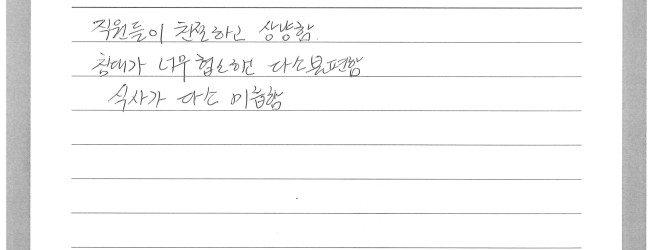 직원들이 친절하고 상냥함.
침대가 너무 협소하고 다소불편함
식사가 다소 미흡함